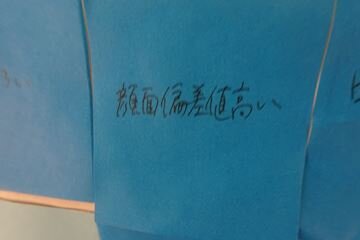 顔面偏差値高い